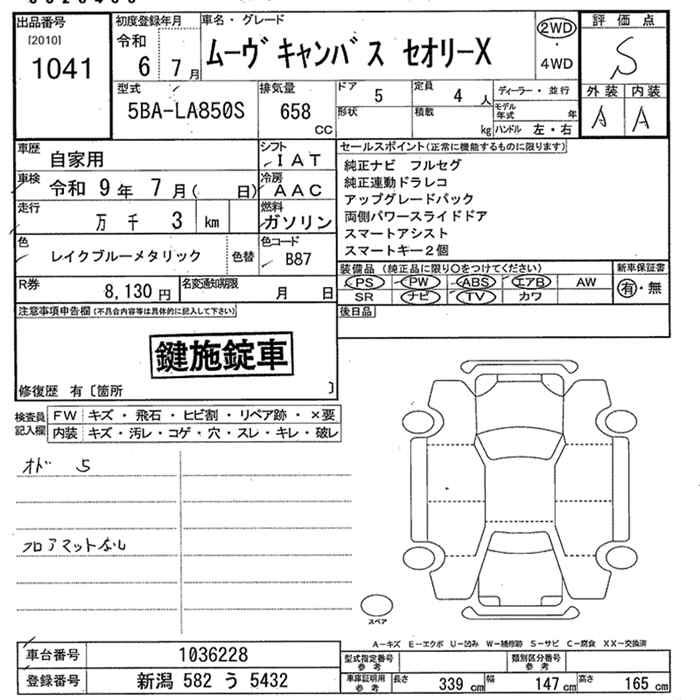 出品番号
[2010]
1041
初度登録年月
令和
6 7月
車名・グレード
ムーヴ キャンバス セオリーX
2WD
・
4WD
評価点
S
外装 内装
A A
型式
5BA-LA850S
排気量
658
cc
ドア
5
定員
4 人
形状
積載
kg
ディーラー・並行
モデル年式 年
ハンドル 左・右
車歴
自家用
シフト
IAT
車検
令和 9年 7月( 日)
冷房
AAC
走行
万 千 3 km
燃料
ガソリン
色
レイクブルーメタリック
色替
色コード
B87
R券
8,130円
名変通知期限
月 日
セールスポイント(正常に機能するものに限ります)
純正ナビ フルセグ
純正連動ドラレコ
アップグレードパック
両側パワースライドドア
スマートアシスト
スマートキー2個
装備品 (純正品に限り○をつけてください)
PS PW ABS エアB AW
SR ナビ TV カワ
新車保証書
有・無
後日品
注意事項申告欄(不具合内容等は具体的に記入して下さい)
鍵施錠車
修復歴 有〔箇所 〕
検査員記入欄
FW キズ・飛石・ヒビ割・リペア跡・×要
内装 キズ・汚レ・コゲ・穴・スレ・キレ・破レ
オド 5
フロアマットなし
スペア
A-キズ E-エクボ U-凹み W-補修跡 S-サビ C-腐食 XX-交換済
車台番号 1036228
登録番号 新潟 582 う 5432
型式指定番号参考
類別区分番号参考
車庫証明用参考
長さ 339 cm 幅 147 cm 高さ 165 cm